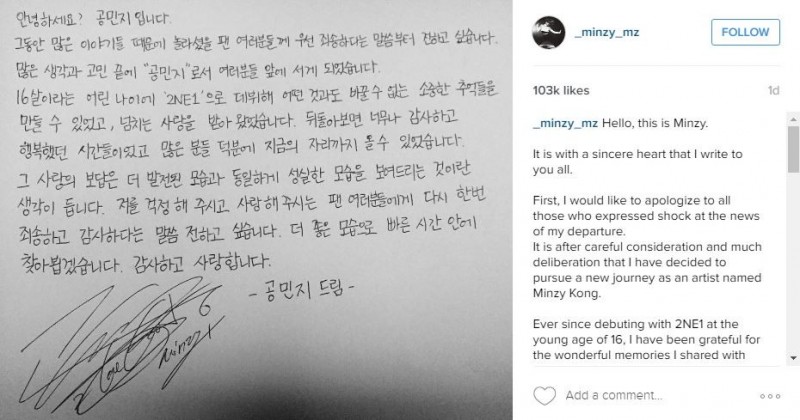 안녕하세요? 공민지입니다.
그동안 많은 이야기들 때문에 놀라셨을 팬 여러분들께 우선 죄송하다는 말씀부터 전하고 싶습니다.
많은 생각과 고민 끝에 "공민지"로서 여러분들 앞에 서게 되었습니다.
16살이라는 어린 나이에 '2NE1'으로 데뷔해 어떤 것과도 바꿀 수 없는 소중한 추억들을
만들 수 있었고, 넘치는 사랑을 받아 왔었습니다. 뒤돌아보면 너무나 감사하고
행복했던 시간들이었고 많은 분들 덕분에 지금의 자리까지 올 수 있었습니다.
그 사랑의 보답은 더 발전된 모습과 동일하게 성실한 모습을 보여드리는 것이란
생각이 듭니다. 저를 걱정해 주시고 사랑해주시는 팬 여러분들에게 다시 한번
죄송하고 감사하다는 말씀 전하고 싶습니다. 더 좋은 모습으로 빠른 시간 안에
찾아뵙겠습니다. 감사하고 사랑합니다.
- 공민지 드림 -
Minzy
_minzy_mz
FOLLOW
103k likes
1d
_minzy_mz Hello, this is Minzy.
It is with a sincere heart that I write to
you all.
First, I would like to apologize to all
those who expressed shock at the news
of my departure.
It is after careful consideration and much
deliberation that I have decided to
pursue a new journey as an artist named
Minzy Kong.
Ever since debuting with 2NE1 at the
young age of 16, I have been grateful for
the wonderful memories I shared with
Add a comment...